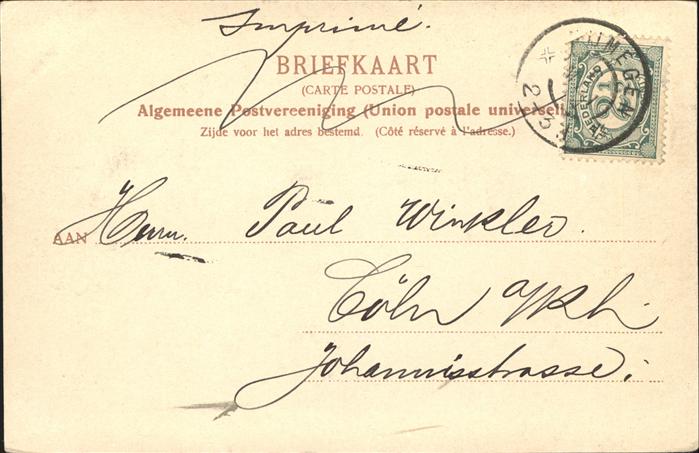 Imprimé.
BRIEFKAART
(CARTE POSTALE)
Algemeene Postvereeniging (Union postale universelle)
Zijde voor het adres bestemd. (Côté réservé à l'adresse.)
NIJMEGEN
NEDERLAND
AAN Herrn. Paul Winkler.
Cöln a/Rh.
Johannisstrasse.